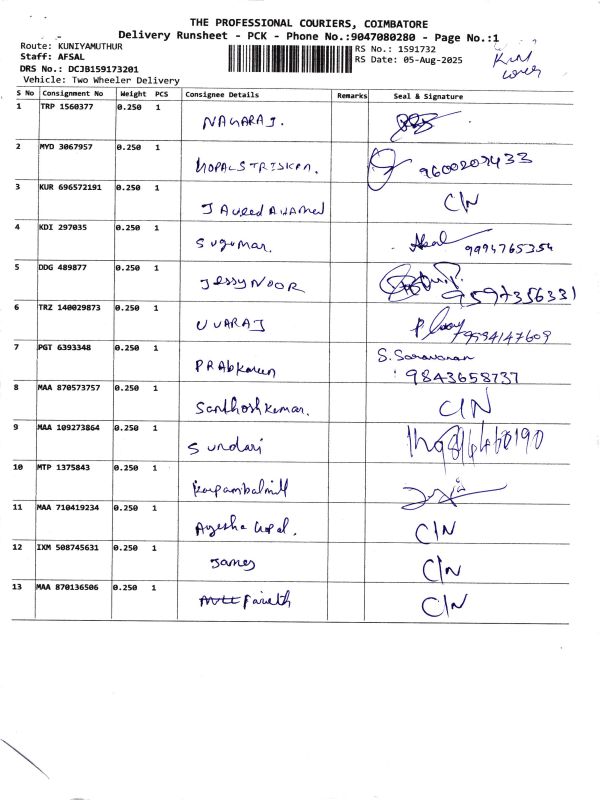 THE PROFESSIONAL COURIERS, COIMBATORE
Delivery Runsheet - PCK - Phone No.:9047080280 - Page No.:1
Route: KUNIYAMUTHUR
RS No.: 1591732
Staff: AFSAL
RS Date: 05-Aug-2025
DRS No.: DCJB159173201
Vehicle: Two Wheeler Delivery
S No Consignment No Weight PCS Consignee Details Remarks Seal & Signature
1 TRP 1560377 0.250 1 NAGARAJ.
2 MYD 3067957 0.250 1 9600207433
3 KUR 696572191 0.250 1 JAVEED AHAMED C/N
4 KDI 297035 0.250 1 Sugumar. 9994765354
5 DDG 489877 0.250 1 JESSYNOOR 9597356331
6 TRZ 140029873 0.250 1 UVARAJ 9994147609
7 PGT 6393348 0.250 1 PRAbkaren S. Saravanan
9843658737
8 MAA 870573757 0.250 1 Santhoshkumar. C/N
9 MAA 109273864 0.250 1 Sundari
10 MTP 1375843 0.250 1
11 MAA 710419234 0.250 1 Ayesha C/N
12 IXM 508745631 0.250 1 James C/N
13 MAA 870136506 0.250 1 C/N